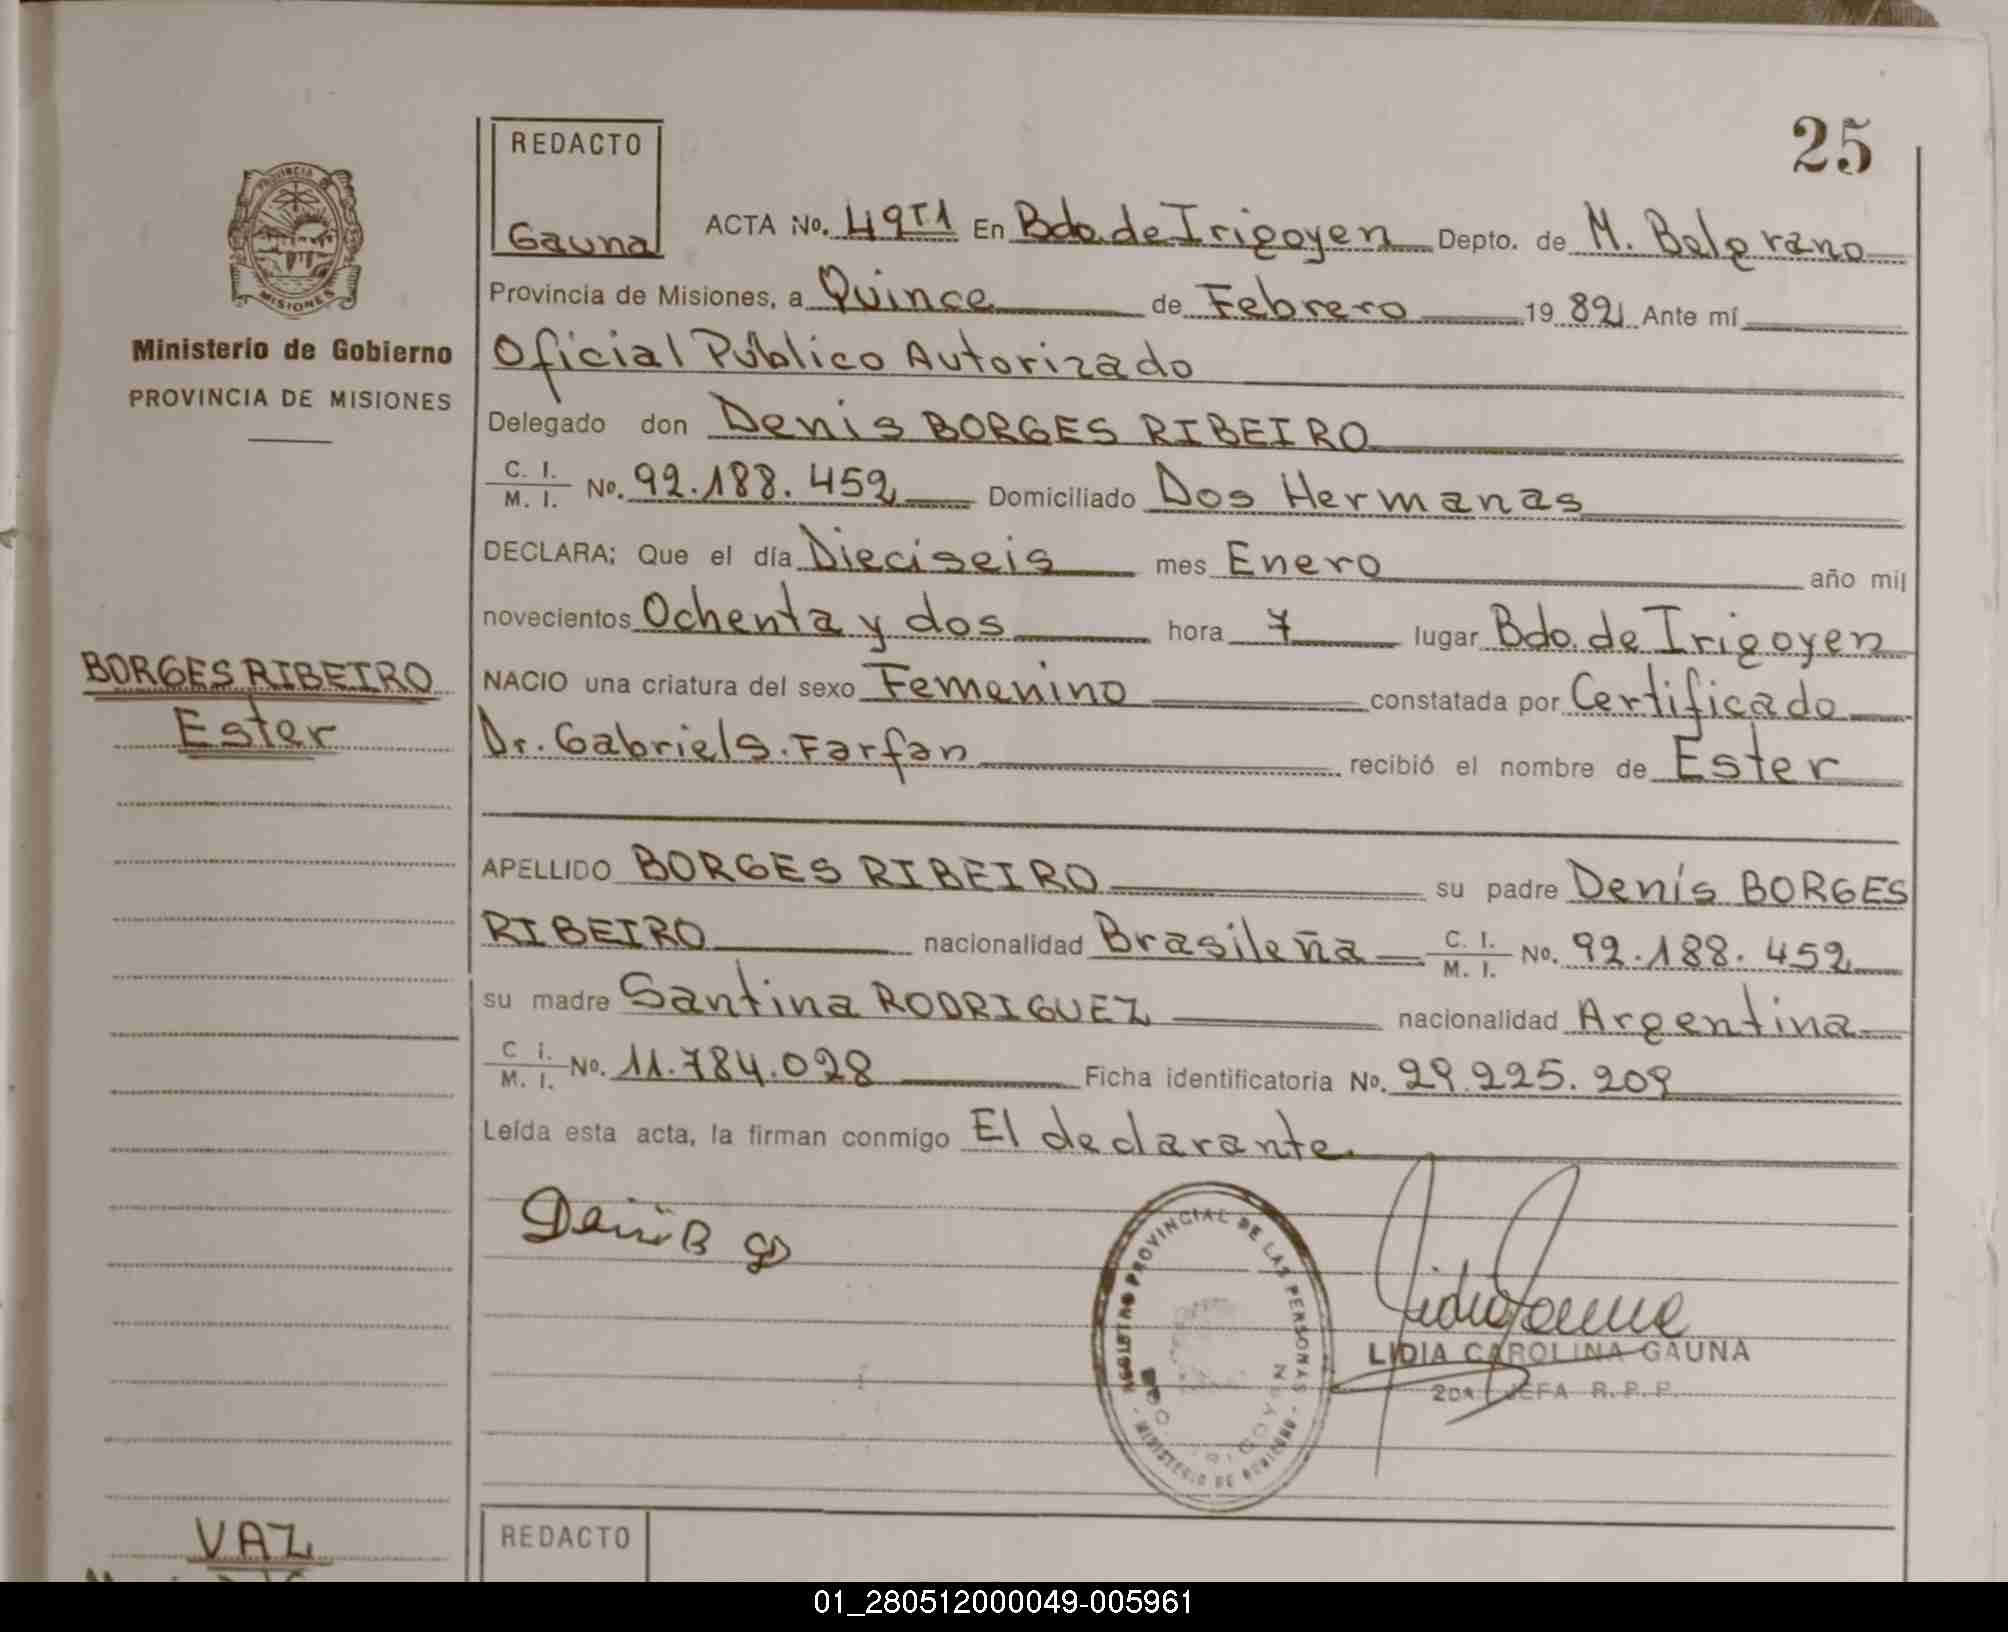 25
REDACTO
Gauna
PROVINCIA
MISIONES
Ministerio de Gobierno
PROVINCIA DE MISIONES
ACTA No. 49 T1 En Bdo. de Irigoyen Depto. de M. Belgrano
Provincia de Misiones, a Quince de Febrero 19 82 Ante mí
Oficial Público Autorizado
Delegado don Denis BORGES RIBEIRO
C. I. / M. I. No. 92.188.452 Domiciliado Dos Hermanas
DECLARA: Que el día Dieciseis mes Enero año mil
novecientos Ochenta y dos hora 7 lugar Bdo. de Irigoyen
BORGES RIBEIRO
Ester
NACIO una criatura del sexo Femenino constatada por Certificado
Dr. Gabriel S. Farfan recibió el nombre de Ester
APELLIDO BORGES RIBEIRO su padre Denis BORGES
RIBEIRO nacionalidad Brasileña C. I. / M. I. No. 92.188.452
su madre Santina RODRIGUEZ nacionalidad Argentina
C i. / M. I. No. 11.784.028 Ficha identificatoria No. 29.225.209
Leída esta acta, la firman conmigo El declarante
REGISTRO PROVINCIAL DE LAS PERSONAS
BDO. IRIGOYEN
- MINISTERIO DE GOBIERNO -
LIDIA CAROLINA GAUNA
2DA JEFA R. P. P.
VAZ
REDACTO
01_280512000049-005961